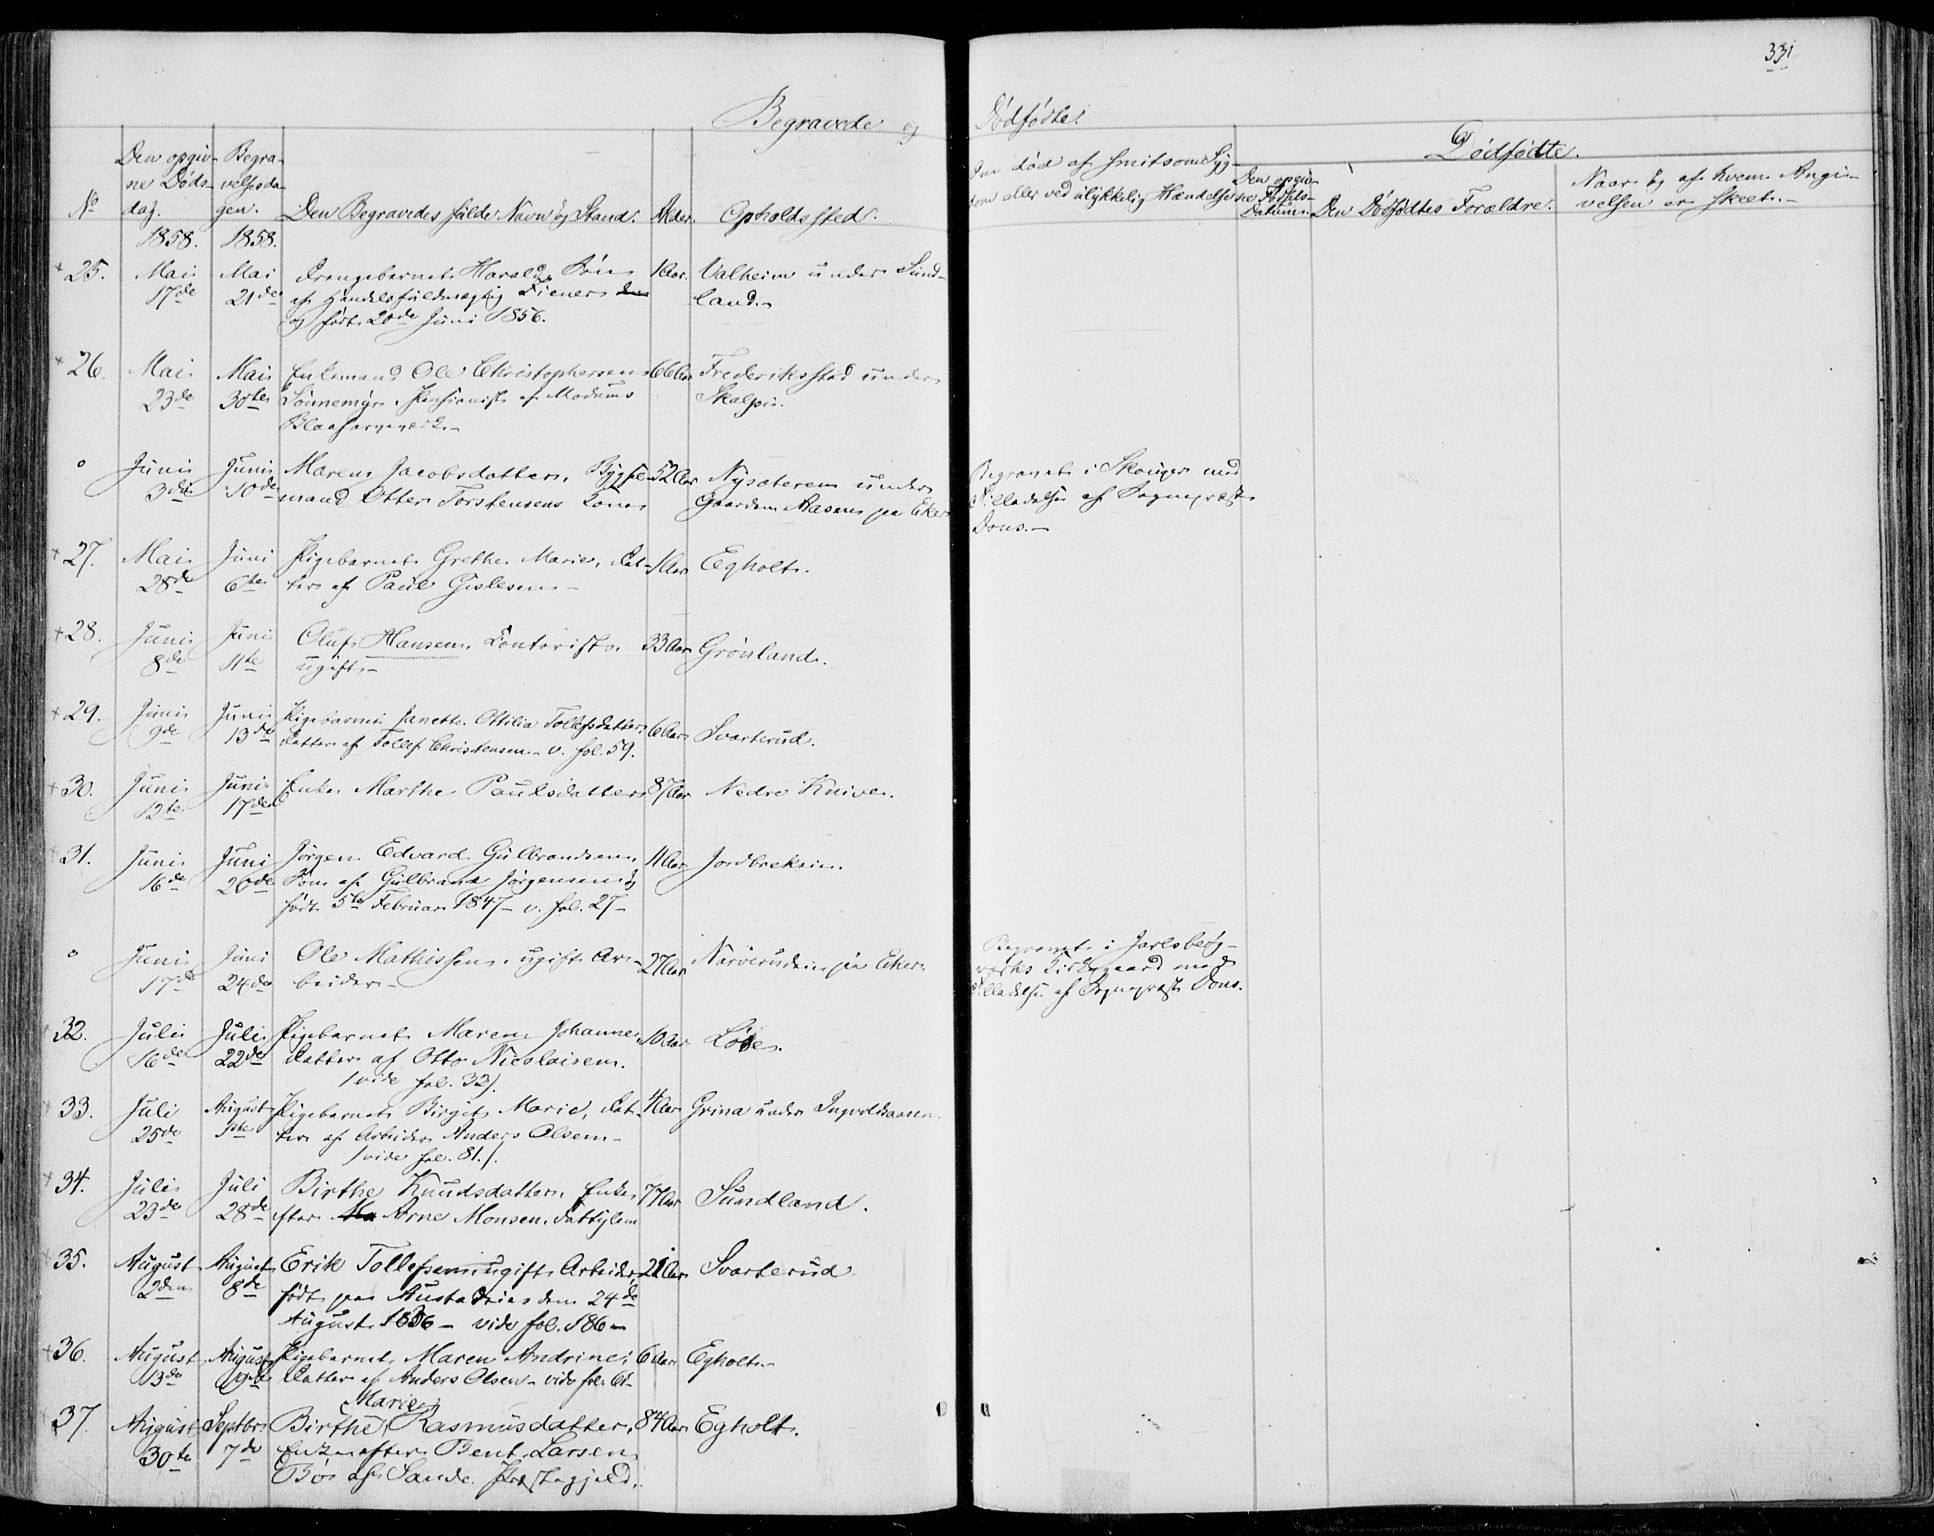 331
Begravede og Dødfødte.
Den opgiv- Begra- Om død af smitsom Syg- Dødfødte.
ne Døds- velsesda- dom eller ved ulykkelig Hændelse Den opgiv- Naar og af hvem Angi-
No dag. gen. Den Begravedes fulde Navn og Stand. Alder. Opholdssted. ne Fødsels- Datum. Den Dødfødtes Forældre. velsen er skeet.-
1858. 1858.
25. Mai Mai Drengebarnet Harald, Søn 1 Aar. Valheim under Sund-
17de 21de af Handelsfuldmægtig Diener den land.
og født 20de Juni 1856.
26. Mai Mai Enkemand Ole Christophersen 66 Aar Frederiksstad under
23de 30te Sønnemyr, Pensionist af Modums Skalpi.
Blaafarveværk.-
o Juni Juni Maren Jacobsdatter, Bygsel- 52 Aar Nysæteren under Begravet i Skouger med
3die 10de mand Otter Torstensens Kone Gaarden Aasen paa Eker Tilladelse af Sognepræst
Dons.-
27. Mai Juni Pigebarnet Grethe Marie, Dat- 1 Aar Egholt.
28de 6te ter af Paul Gislesen-
28. Juni Juni Oluf Hansen, Contorist, 33 Aar Grønland.
8de 11te ugift-
29. Juni Juni Pigebarnet Janette Ottilia Tollefsdatter, 6 Aar Svarterud.
9de 13de Datter af Tollef Christensen. v. fol. 59.
30. Juni Juni Enke Marthe Paulsdatter 87 Aar Nedre Knive.
12te 17de
31. Juni Juni Jørgen Edvard Gulbrandsen, 11 Aar Jordbrekken.
16de 20de Søn af Gulbrand Jørgensen og
født 5te Februar 1847- v. fol. 27-
o Juni Juni Ole Mathissen, ugift Ar- 27 Aar Narverud paa Eker. Begravet i Jarlsberg-
17de 24de beider- værks Kirkegaard med
Tilladelse af Sognepræst Dons.
32. Juli Juli Pigebarnet Maren Johanne, 10 Aar Løse.
16de 22de Datter af Otto Nicolaisen.
/vide fol. 32/.
33. Juli August Pigebarnet Birgit Marie, Dat- 4 Aar Grina under Ingvoldsaasen.
25de 1ste ter af Arbeider Anders Olsen-
/vide fol. 81./
34. Juli Juli Birthe Knudsdatter, Enke 77 Aar Sundland.
23de 28de efter Ma Arne Monsen, Fattiglem
35. August August Erik Tollefsen, ugift Arbeider, 21 Aar Svarterud
2den 8de født paa Austad den 24de
August 1836- vide fol. 186-
36. August August Pigebarnet Maren Andrine, 6 Aar Egholt.-
13de Datter af Anders Olsen- vide fol. 61-
Marie
37. August Septbr. Birthe Rasmusdatter, 84 Aar Egholt.
30te 7de Enke efter Bent Larsen
Bøe af Sande Præstegjeld.